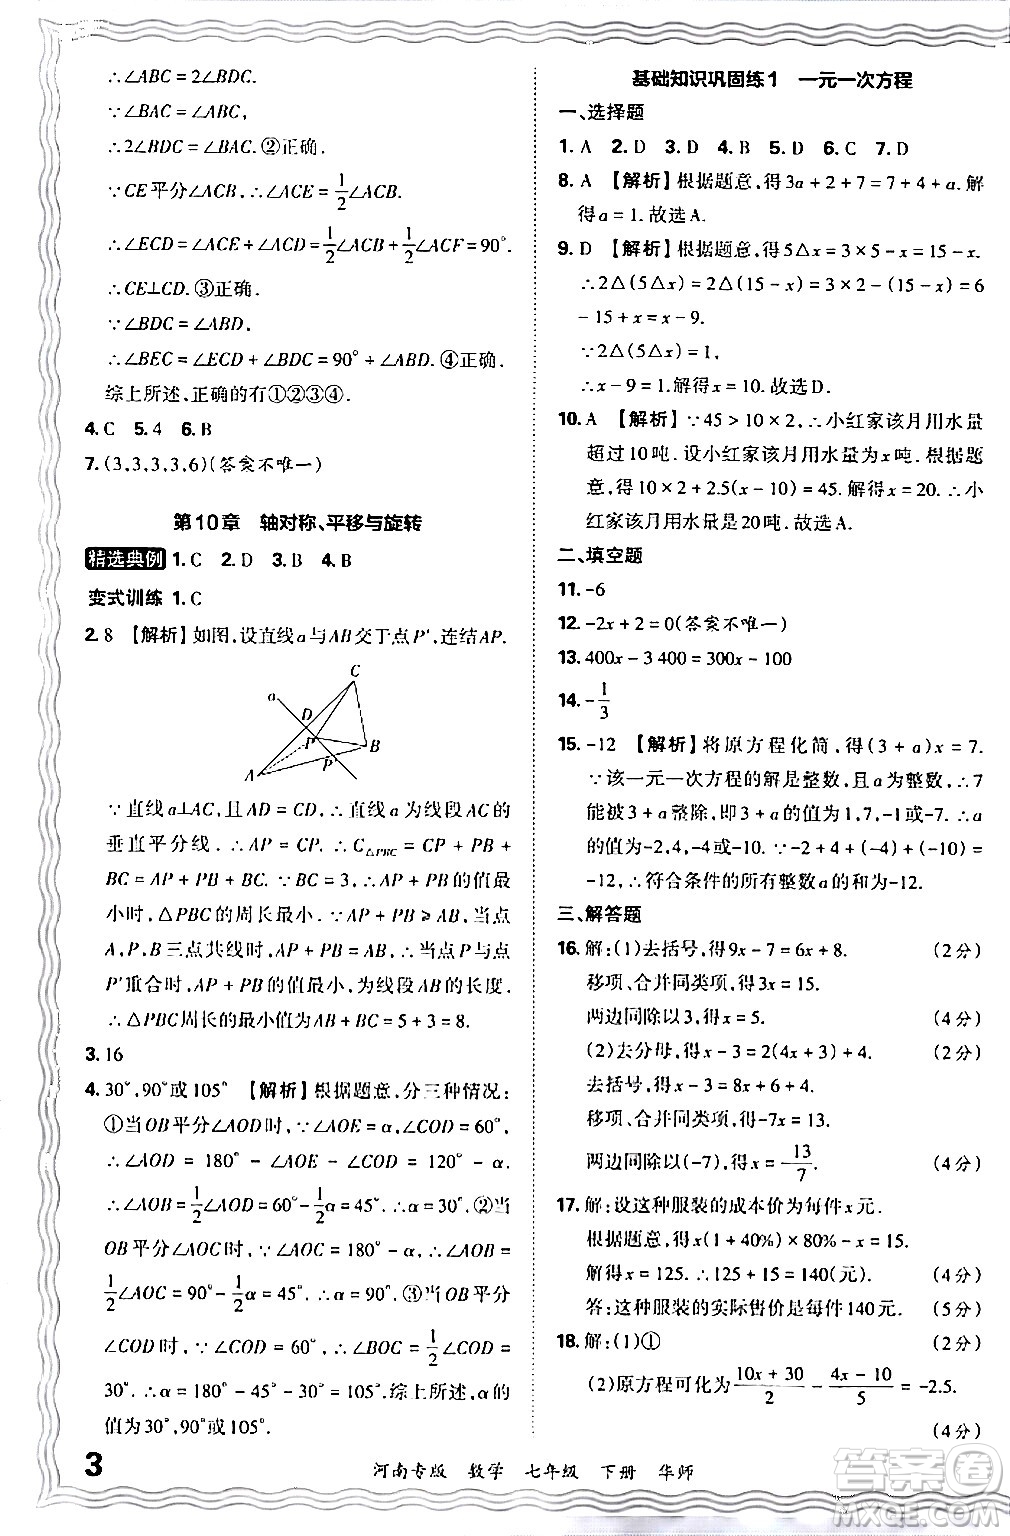 ∴∠ABC = 2∠BDC.
∵∠BAC = ∠ABC,
∴2∠BDC = ∠BAC.②正确.
∵CE平分∠ACB,∴∠ACE = 1/2∠ACB.
∴∠ECD = ∠ACE + ∠ACD = 1/2∠ACB + 1/2∠ACF = 90°.
∴CE⊥CD.③正确.
∵∠BDC = ∠ABD,
∴∠BEC = ∠ECD + ∠BDC = 90° + ∠ABD.④正确.
综上所述,正确的有①②③④.
4.C 5.4 6.B
7.(3,3,3,3,6)(答案不唯一)
第10章 轴对称、平移与旋转
精选典例 1.C 2.D 3.B 4.B
变式训练 1.C
2.8 【解析】如图,设直线a与AB交于点P′,连结AP.
C
a
D
P
B
P′
A
∵直线a⊥AC,且AD = CD,∴直线a为线段AC的
垂直平分线.∴AP = CP.∴C△PBC = CP + PB +
BC = AP + PB + BC.∵BC = 3,∴AP + PB的值最
小时,△PBC的周长最小.∵AP + PB ≥ AB,当点
A,P,B三点共线时,AP + PB = AB,∴当点P与点
P′重合时,AP + PB的值最小,为线段AB的长度.
∴△PBC周长的最小值为AB + BC = 5 + 3 = 8.
3.16
4.30°,90°或105° 【解析】根据题意,分三种情况:
①当OB平分∠AOD时,∵∠AOE = α,∠COD = 60°,
∴∠AOD = 180° - ∠AOE - ∠COD = 120° - α.
∴∠AOB = 1/2∠AOD = 60° - 1/2α = 45°.∴α = 30°.②当
OB平分∠AOC时,∵∠AOC = 180° - α,∴∠AOB =
1/2∠AOC = 90° - 1/2α = 45°.∴α = 90°.③当OB平分
∠COD时,∵∠COD = 60°,∴∠BOC = 1/2∠COD =
30°.∴α = 180° - 45° - 30° = 105°.综上所述,α的
值为30°,90°或105°.
基础知识巩固练1 一元一次方程
一、选择题
1.A 2.D 3.D 4.B 5.D 6.C 7.D
8.A 【解析】根据题意,得3a + 2 + 7 = 7 + 4 + a.解
得a = 1.故选A.
9.D 【解析】根据题意,得5△x = 3 × 5 - x = 15 - x.
∴2△(5△x) = 2△(15 - x) = 3 × 2 - (15 - x) = 6
- 15 + x = x - 9.
∵2△(5△x) = 1,
∴x - 9 = 1.解得x = 10.故选D.
10.A 【解析】∵45 > 10 × 2,∴小红家该月用水量
超过10吨.设小红家该月用水量为x吨.根据题
意,得10 × 2 + 2.5(x - 10) = 45.解得x = 20.∴小
红家该月用水量是20吨.故选A.
二、填空题
11.-6
12.-2x + 2 = 0(答案不唯一)
13.400x - 3 400 = 300x - 100
14.-1/3
15.-12 【解析】将原方程化简,得(3 + a)x = 7.
∵该一元一次方程的解是整数,且a为整数,∴7
能被3 + a整除,即3 + a的值为1,7,-1或-7.∴a
的值为-2,4,-4或-10.∵-2 + 4 + (-4) + (-10) =
-12,∴符合条件的所有整数a的和为-12.
三、解答题
16.解:(1)去括号,得9x - 7 = 6x + 8. (2分)
移项、合并同类项,得3x = 15.
两边同除以3,得x = 5. (4分)
(2)去分母,得x - 3 = 2(4x + 3) + 4. (2分)
去括号,得x - 3 = 8x + 6 + 4.
移项、合并同类项,得-7x = 13.
两边同除以(-7),得x = -13/7. (4分)
17.解:设这种服装的成本价为每件x元.
根据题意,得x(1 + 40%) × 80% - x = 15.
解得x = 125.∴125 + 15 = 140(元). (4分)
答:这种服装的实际售价是每件140元. (5分)
18.解:(1)① (2分)
(2)原方程可化为(10x + 30)/2 - (4x - 10)/5 = -2.5.
(4分)
3
河南专版 数学 七年级 下册 华师
答案圈
MXQE.COM